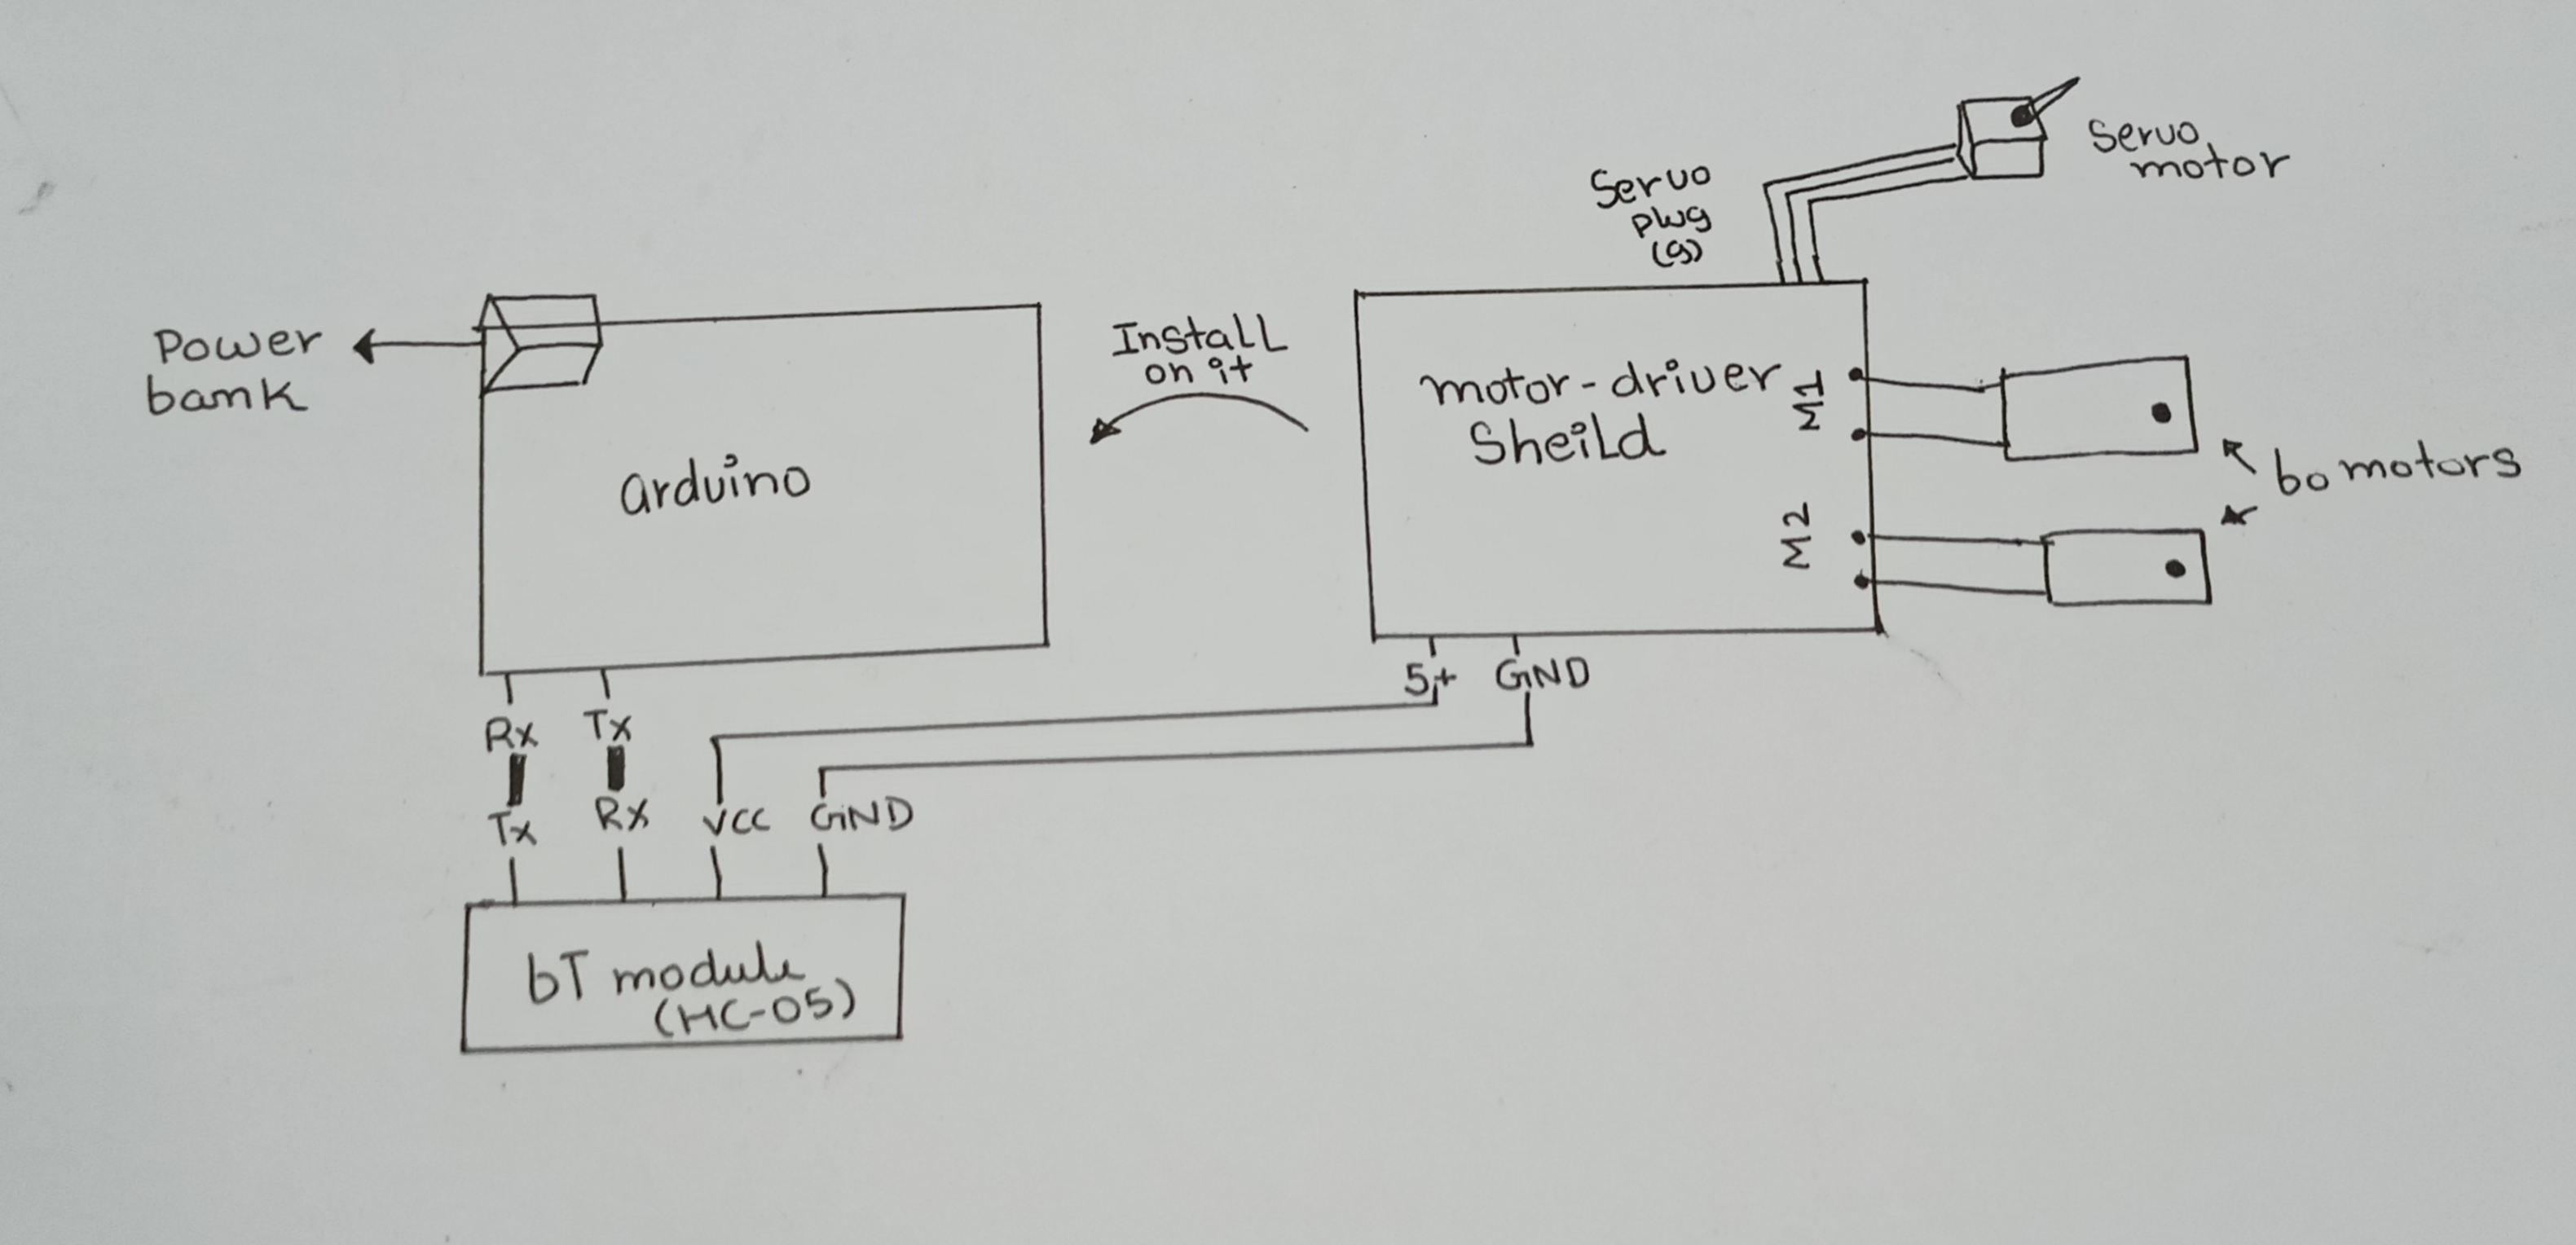 Servo
motor
Servo
plug
(9)
Power
bank
Install
on it
arduino
motor-driver
Sheild
M1
M2
bo motors
5+
GND
Rx
Tx
Tx
Rx
VCC
GND
bT module
(HC-05)